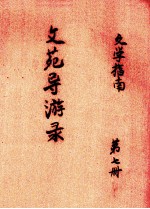 文学指南
文苑导游录
第七册